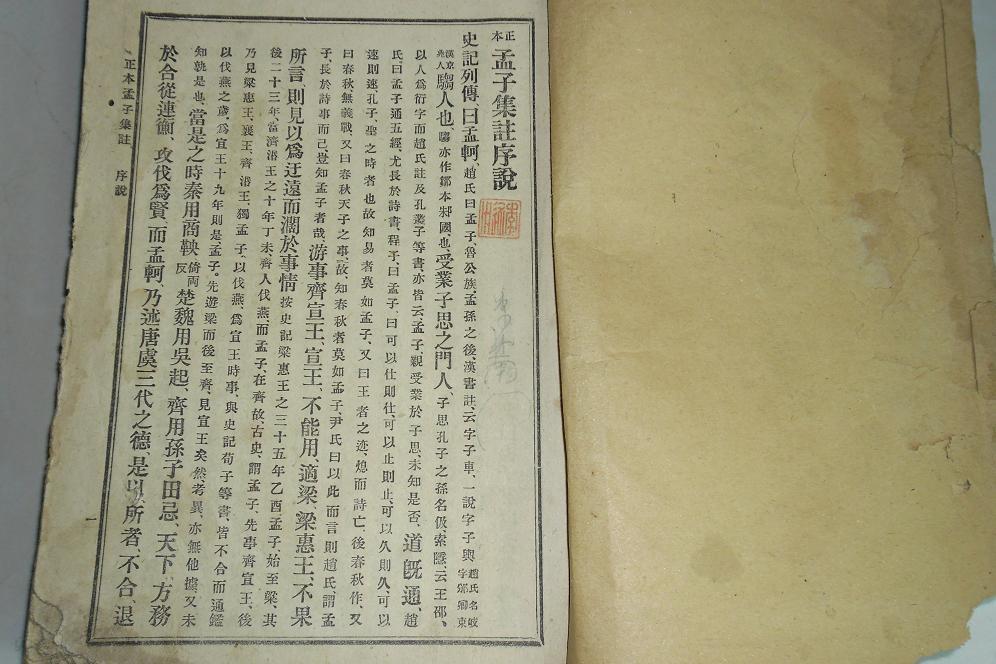 正本孟子集註序說
史記列傳、曰孟軻、趙氏曰孟子魯公族、孟孫之後、漢書註、云字子車、一說字子輿趙氏名岐字邠卿東
漢京兆人騶人也、騶亦作鄒本邾國也、受業子思之門人、子思孔子之孫名伋、索隱、云王邵、
以人爲衍字而趙氏註及孔叢子等書、亦皆云、孟子、親受業於子思、未知是否、道既通、趙
氏曰孟子通五經尤長於詩書、程子曰孟子、曰可以仕則仕、可以止則止、可以久則久、可以
速則速、孔子、聖之時者也故知易者莫如孟子、又曰王者之迹、熄而詩亡、後春秋作、又
曰春秋無義戰、又曰春秋天子之事、故、知春秋者莫如孟子、尹氏曰以此而言則趙氏、謂孟
子、長於詩事而已、豈知孟子者哉、游事齊宣王、宣王、不能用、適梁、梁惠王、不果
所言、則見以爲迂遠而濶於事情按史記梁惠王之三十五年乙酉孟子、始至梁、其
後二十三年、當齊湣王之十年丁未、齊人伐燕、而孟子、在齊故、古史、謂孟子、先事齊宣王、後
乃見梁惠王、襄王、齊湣王、獨孟子、以伐燕、爲宣王時事、與史記荀子等書、皆不合而通鑑
以伐燕之歲、爲宣王十九年則是、孟子。先遊梁而後至齊、見宣王矣然、考異、亦無他據、又未
知孰是也、當是之時秦用商鞅倚兩反楚魏用吳起、齊用孫子田忌、天下、方務
於合從連衡、攻伐爲賢、而孟軻、乃述唐虞三代之德、是以、所者、不合、退
正本孟子集註 序說 一